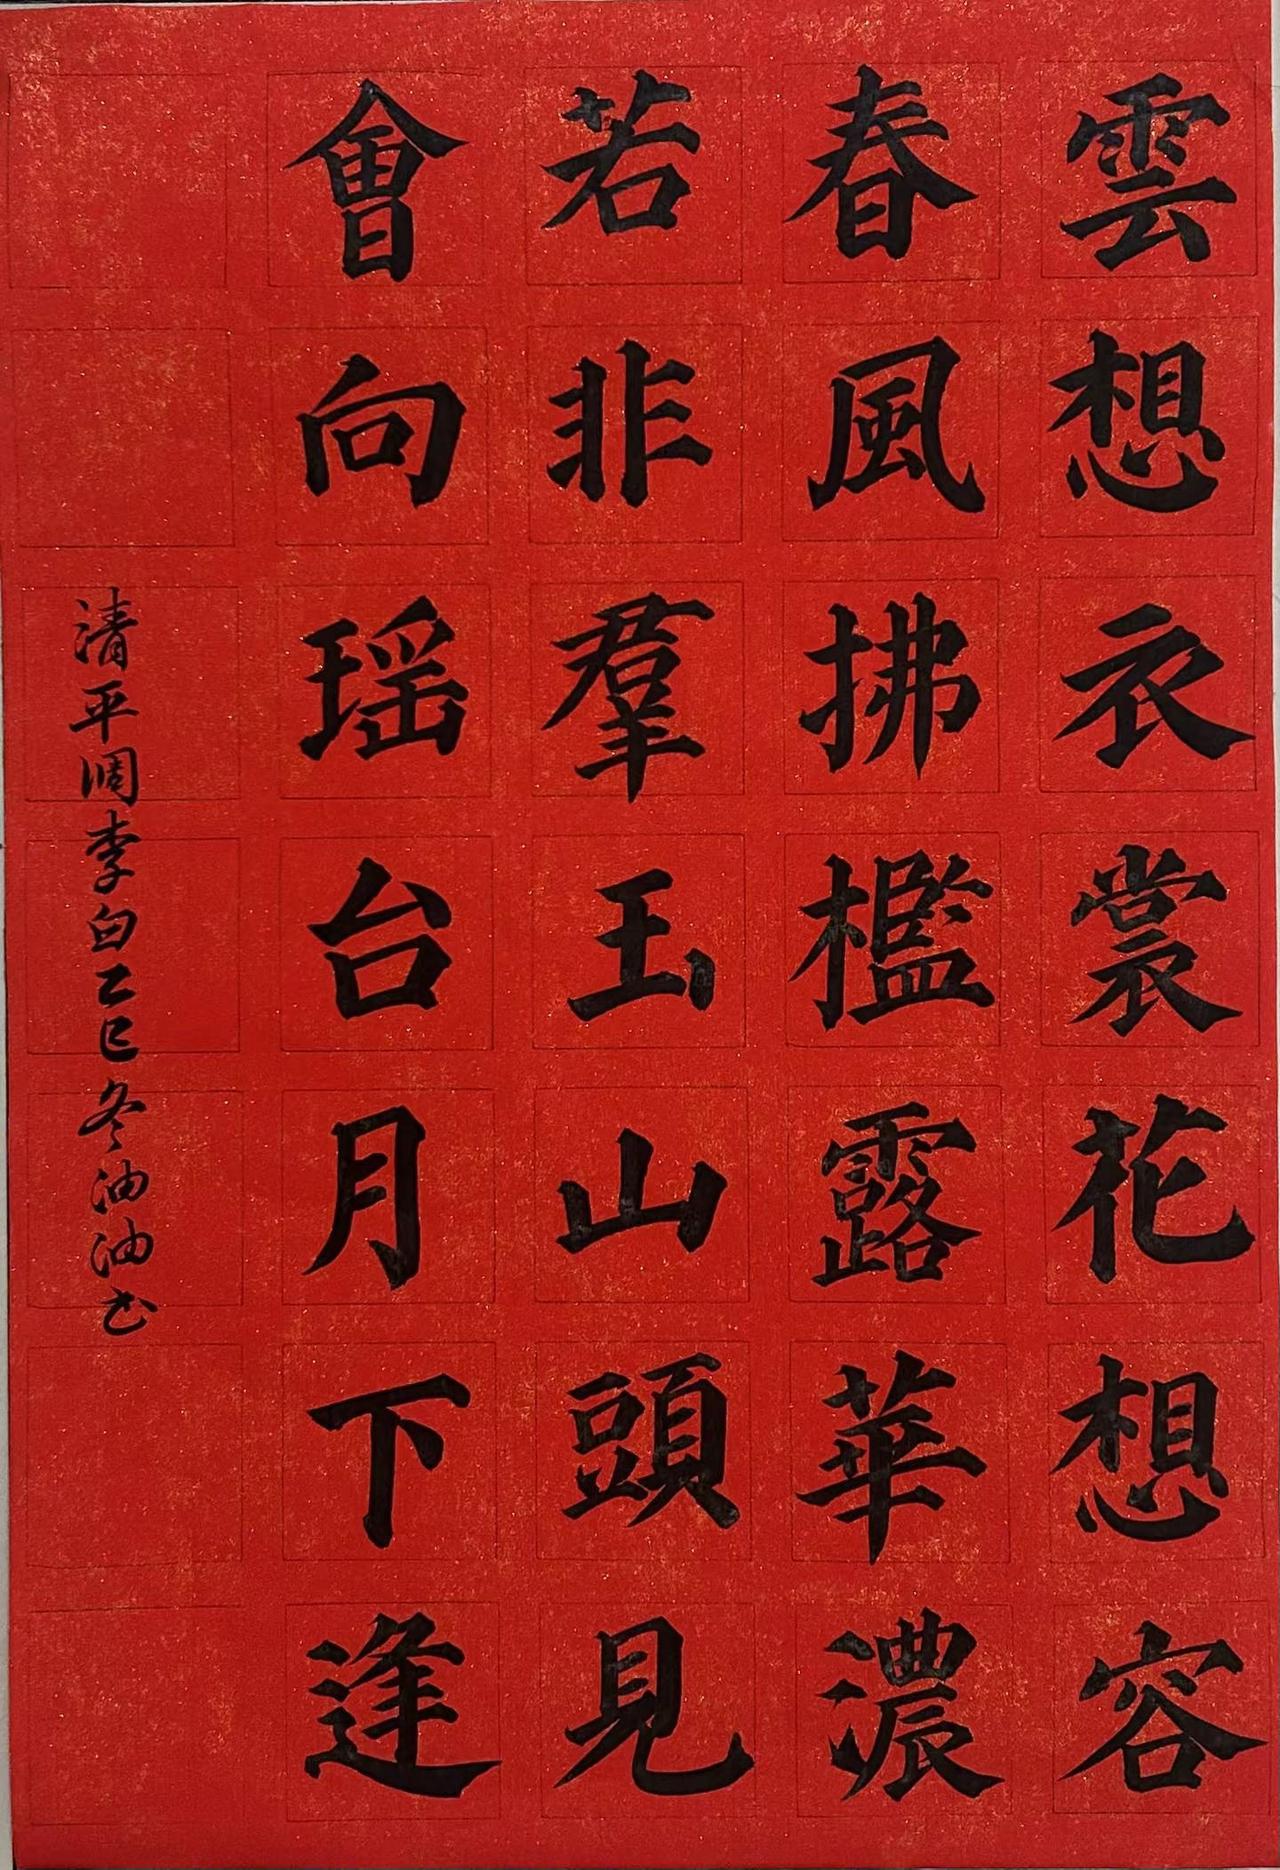 雲想衣裳花想容
春風拂檻露華濃
若非羣玉山頭見
會向瑶台月下逢
清平调李白乙巳冬油油书